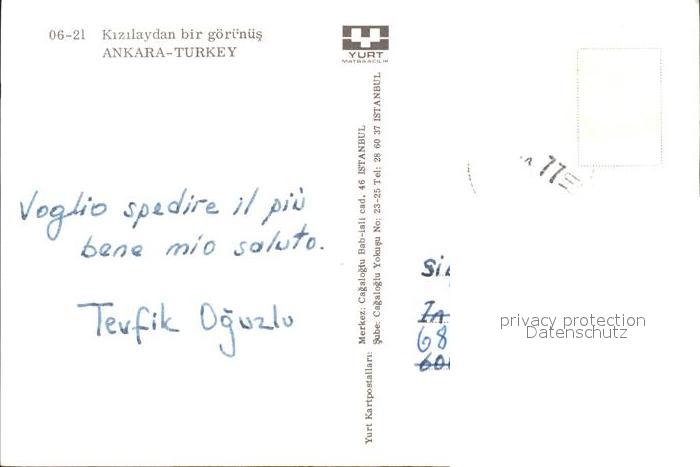 06-21 Kızılaydan bir görünüş
ANKARA-TURKEY
YURT
MATBAACILIK
Voglio spedire il più
bene mio saluto.
Tevfik Oğuzlu
Yurt Kartpostalları: Merkez: Cağaloğlu Bab-iali cad. 46 ISTANBUL
Şube: Cağaloğlu Yokuşu No: 23-25 Tel: 28 60 37 ISTANBUL
77
68
privacy protection
Datenschutz